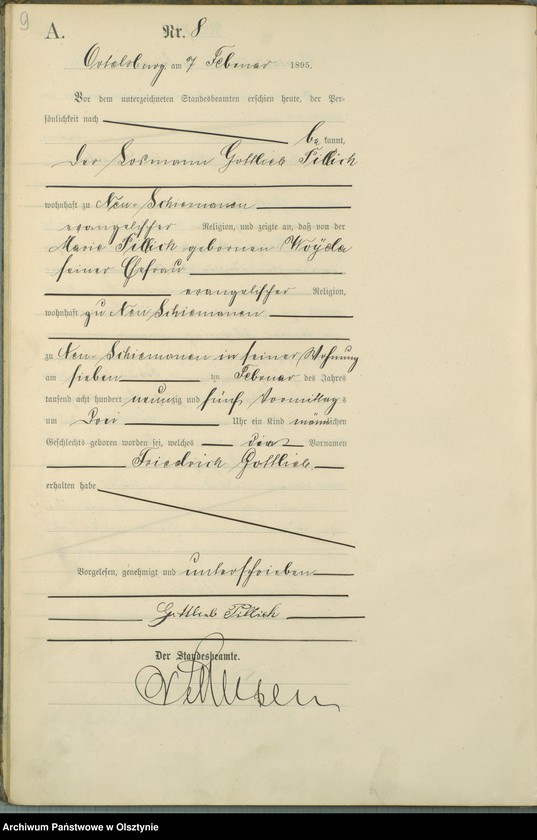 9
A.
Nr. 8
Ortelsburg, am 7 Februar 1895.
Vor dem unterzeichneten Standesbeamten erschien heute, der Per-
sönlichkeit nach
be kannt,
der Losmann Gottlieb Tillich
wohnhaft zu Neu-Schiemanen
evangelischer Religion, und zeigte an, daß von der
Marie Tillich geborenen Woyda
seiner Ehefrau
evangelischer Religion,
wohnhaft zu Neu Schiemanen
zu Neu-Schiemanen in seiner Wohnung
am sieben ten Februar des Jahres
tausend acht hundert neunzig und fünf Vormittags
um drei Uhr ein Kind männlichen
Geschlechts geboren worden sei, welches die Vornamen
Friedrich Gottlieb
erhalten habe
Vorgelesen, genehmigt und unterschrieben
Gottlieb Tillich
Der Standesbeamte.
Archiwum Państwowe w Olsztynie